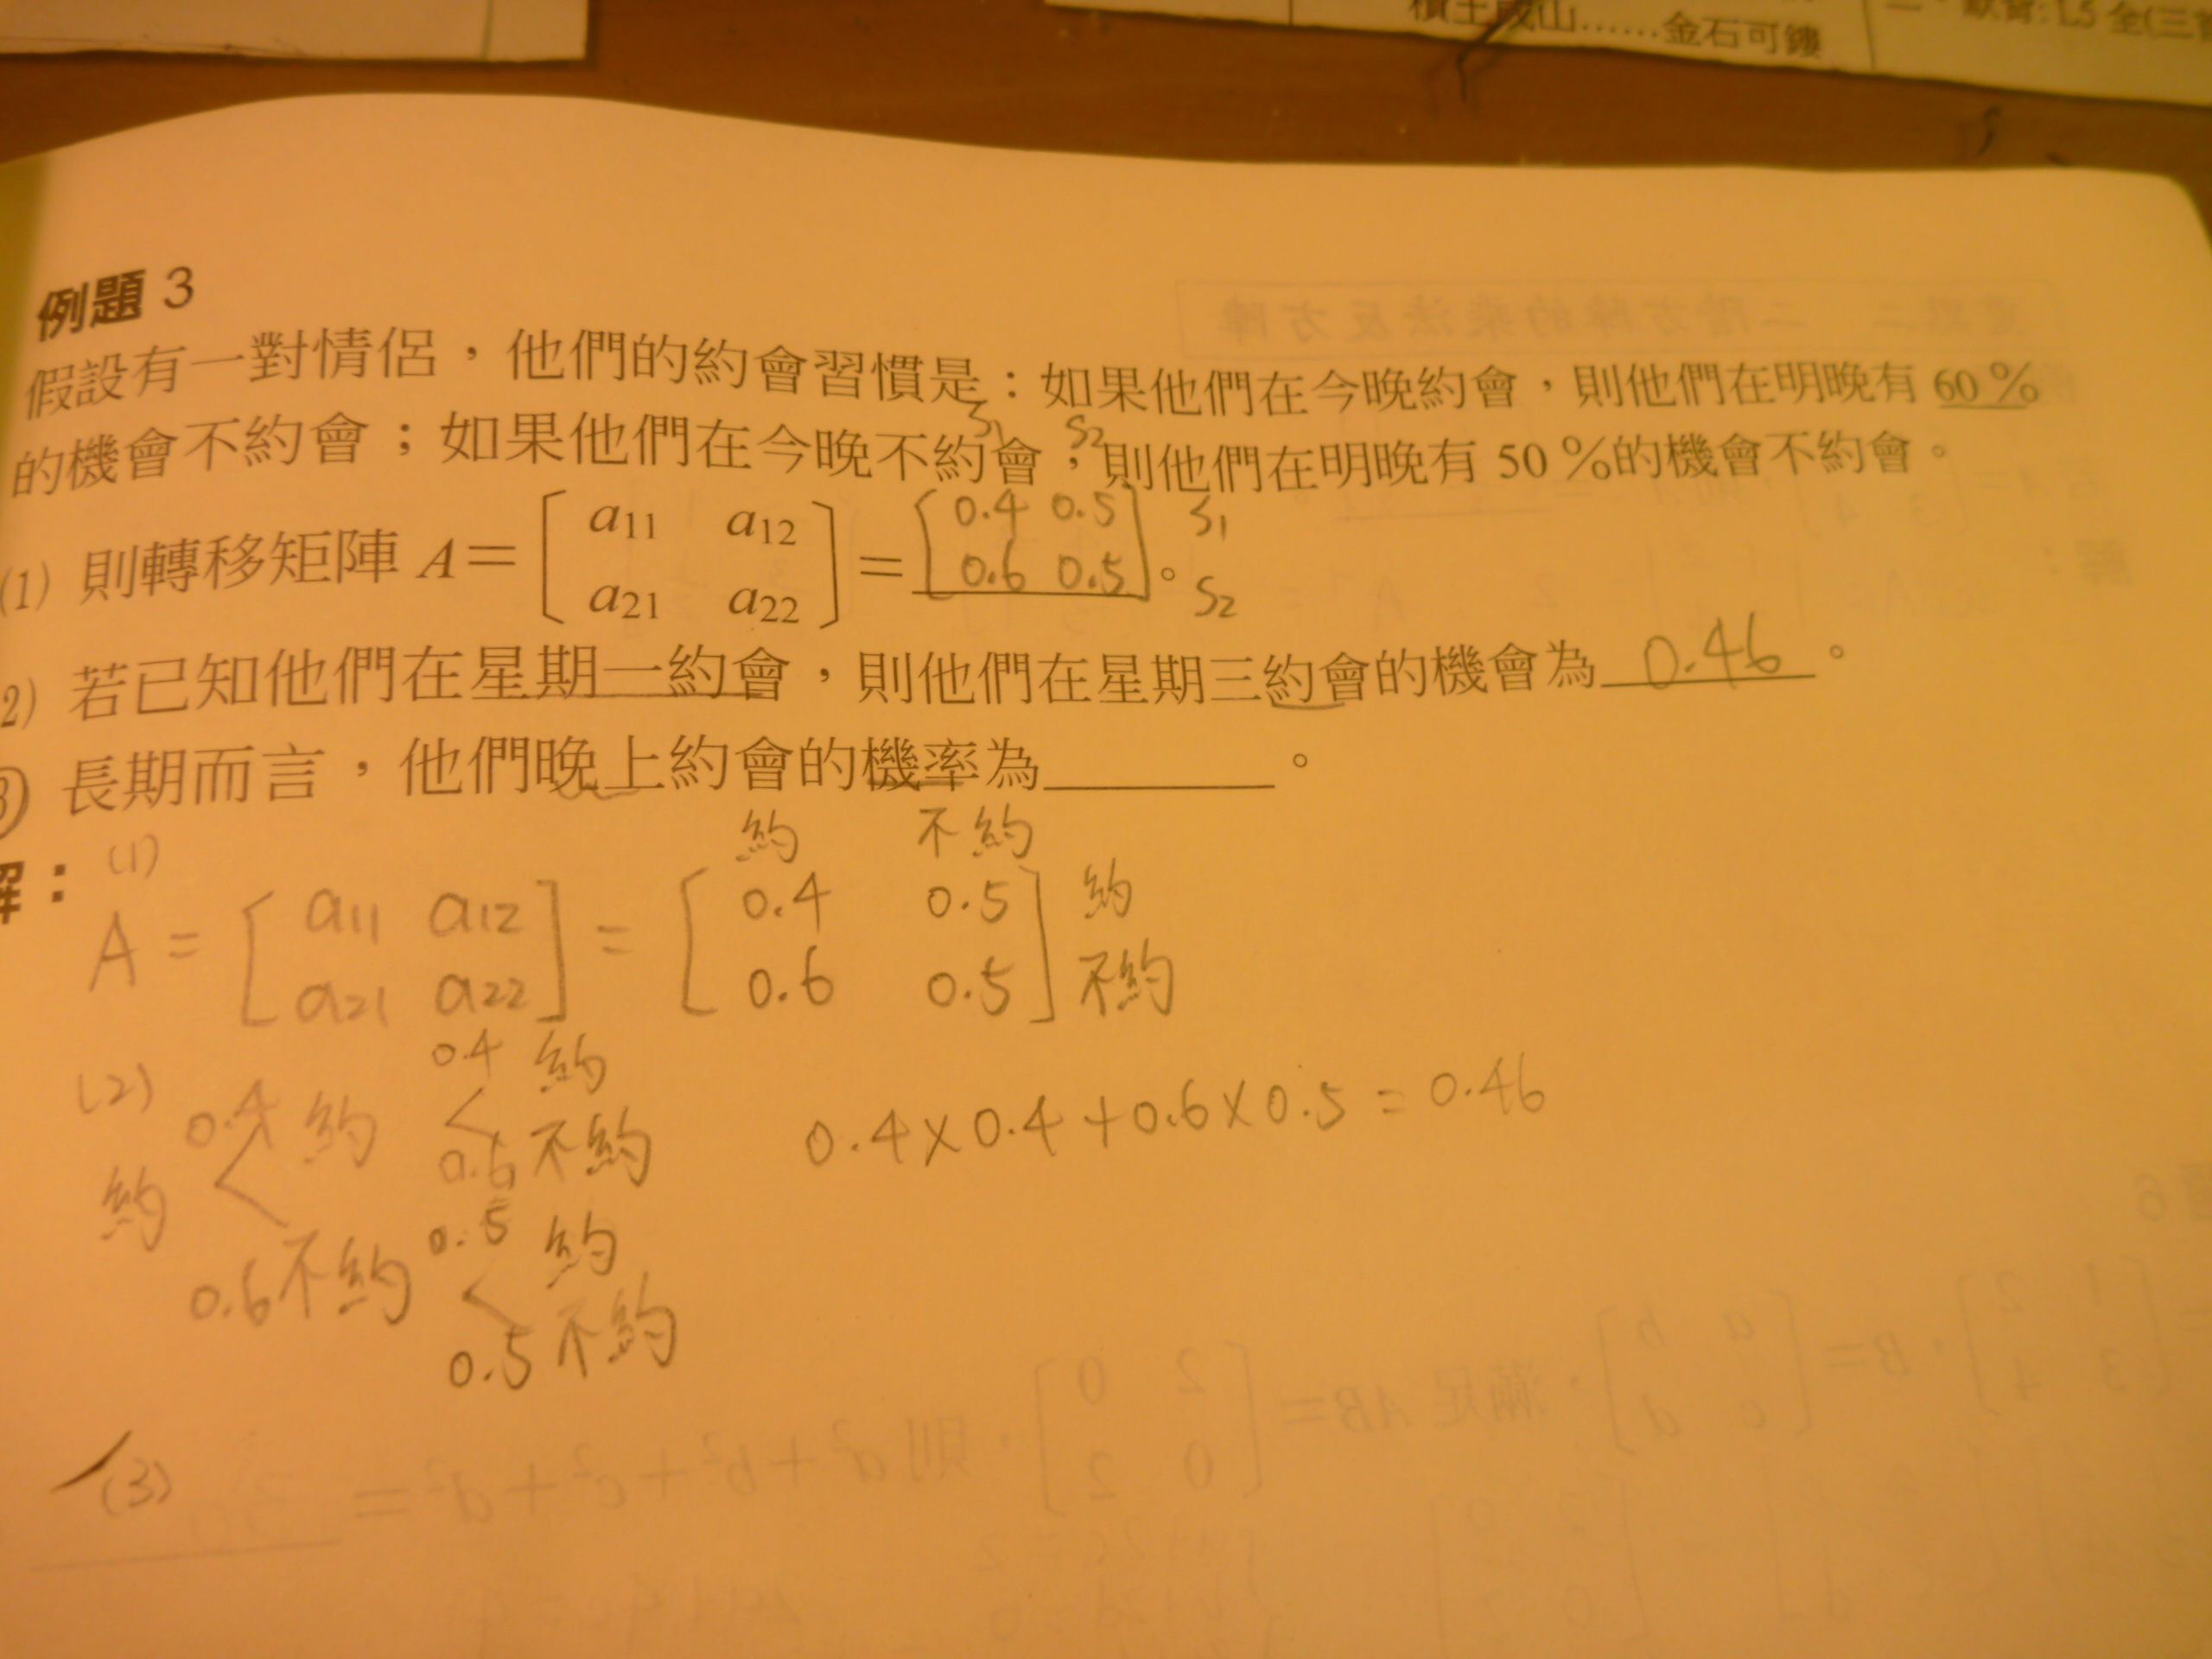 積土成山……金石可鏤
例題 3
假設有一對情侶，他們的約會習慣是：如果他們在今晚約會，則他們在明晚有 60 %
的機會不約會；如果他們在今晚不約會，則他們在明晚有 50 %的機會不約會。
S1 S2
(1) 則轉移矩陣 A = [ a11 a12 a21 a22 ] = [ 0.4 0.5 0.6 0.5 ]。 S1 S2
2) 若已知他們在星期一約會，則他們在星期三約會的機會為 0.46 。
3) 長期而言，他們晚上約會的機率為＿＿＿。
解：(1)
約 不約
A = [ a11 a12 a21 a22 ] = [ 0.4 0.5 0.6 0.5 ] 約 不約
(2)
約 < 0.4 約 < 0.4 約
0.6 不約
0.6 不約 < 0.5 約
0.5 不約
0.4×0.4+0.6×0.5=0.46
(3)